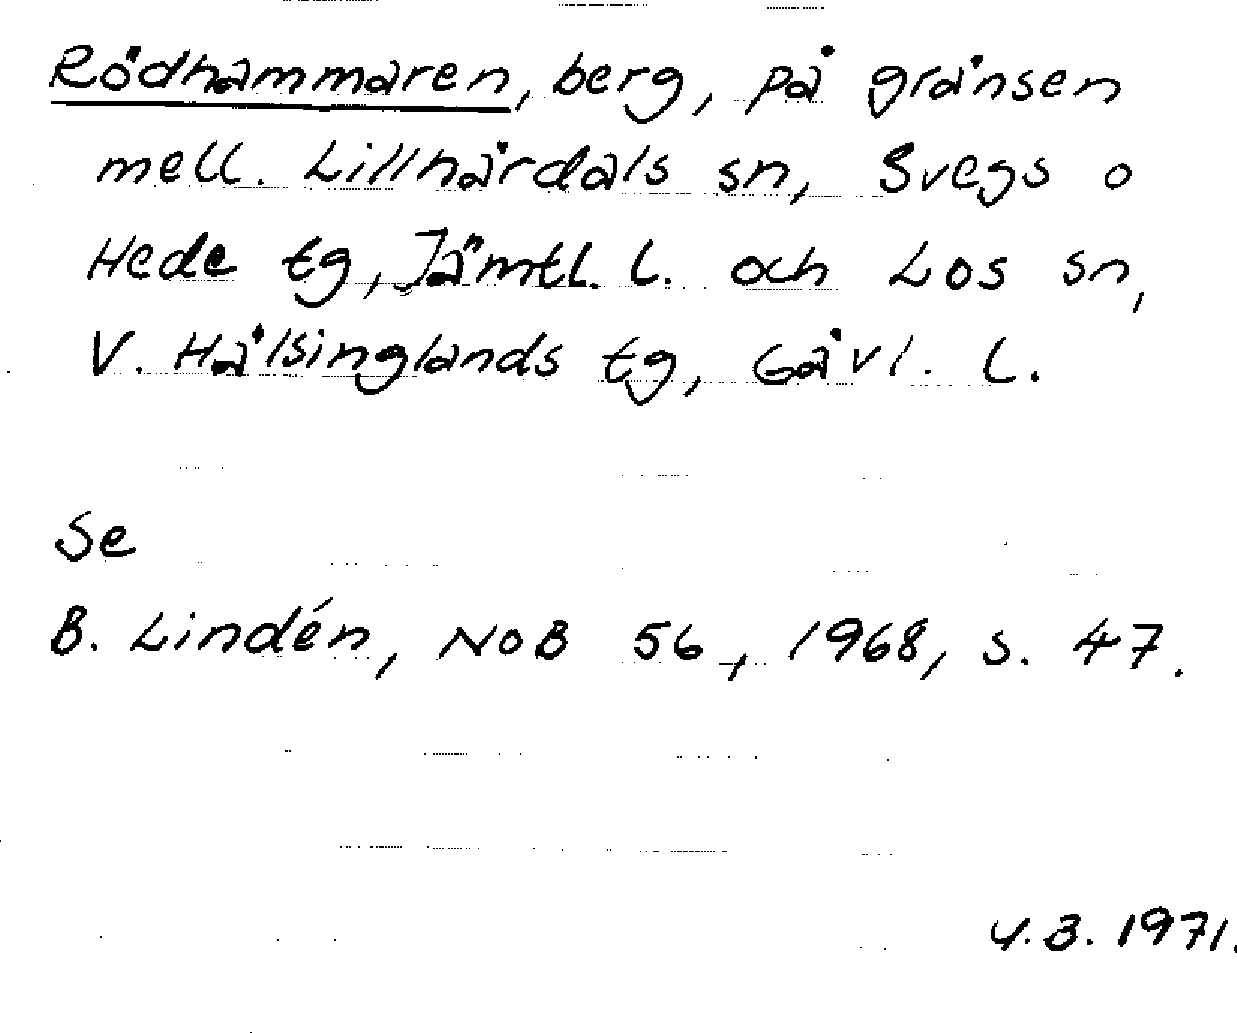 Rödhammaren, berg, på gränsen
mell. Lillhärdals sn, Svegs o
Hede tg, Jämtl. l. och Los sn,
V. Hälsinglands tg, Gävl. l.
Se
B. Lindén, NoB 56, 1968, s. 47.
V.B. 1971.